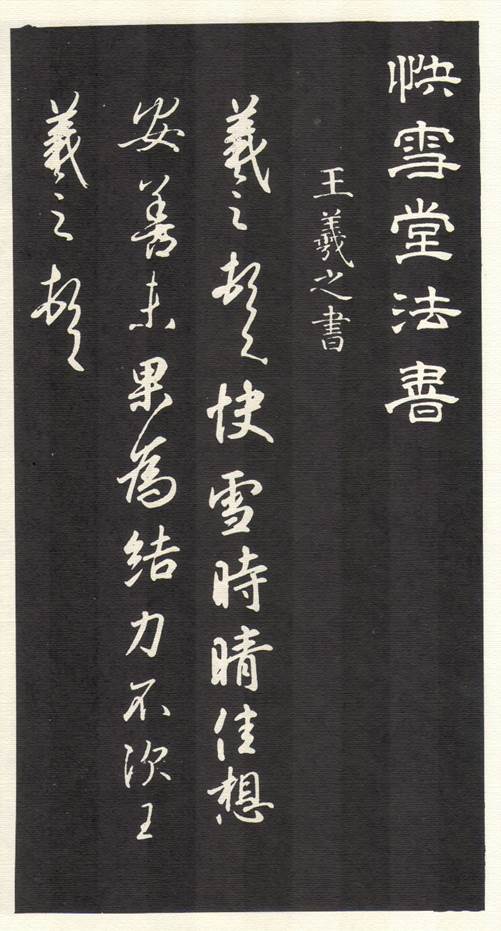 快雪堂法書
王羲之書
羲之頓首快雪時晴佳想
安善未果為結力不次王
羲之頓首